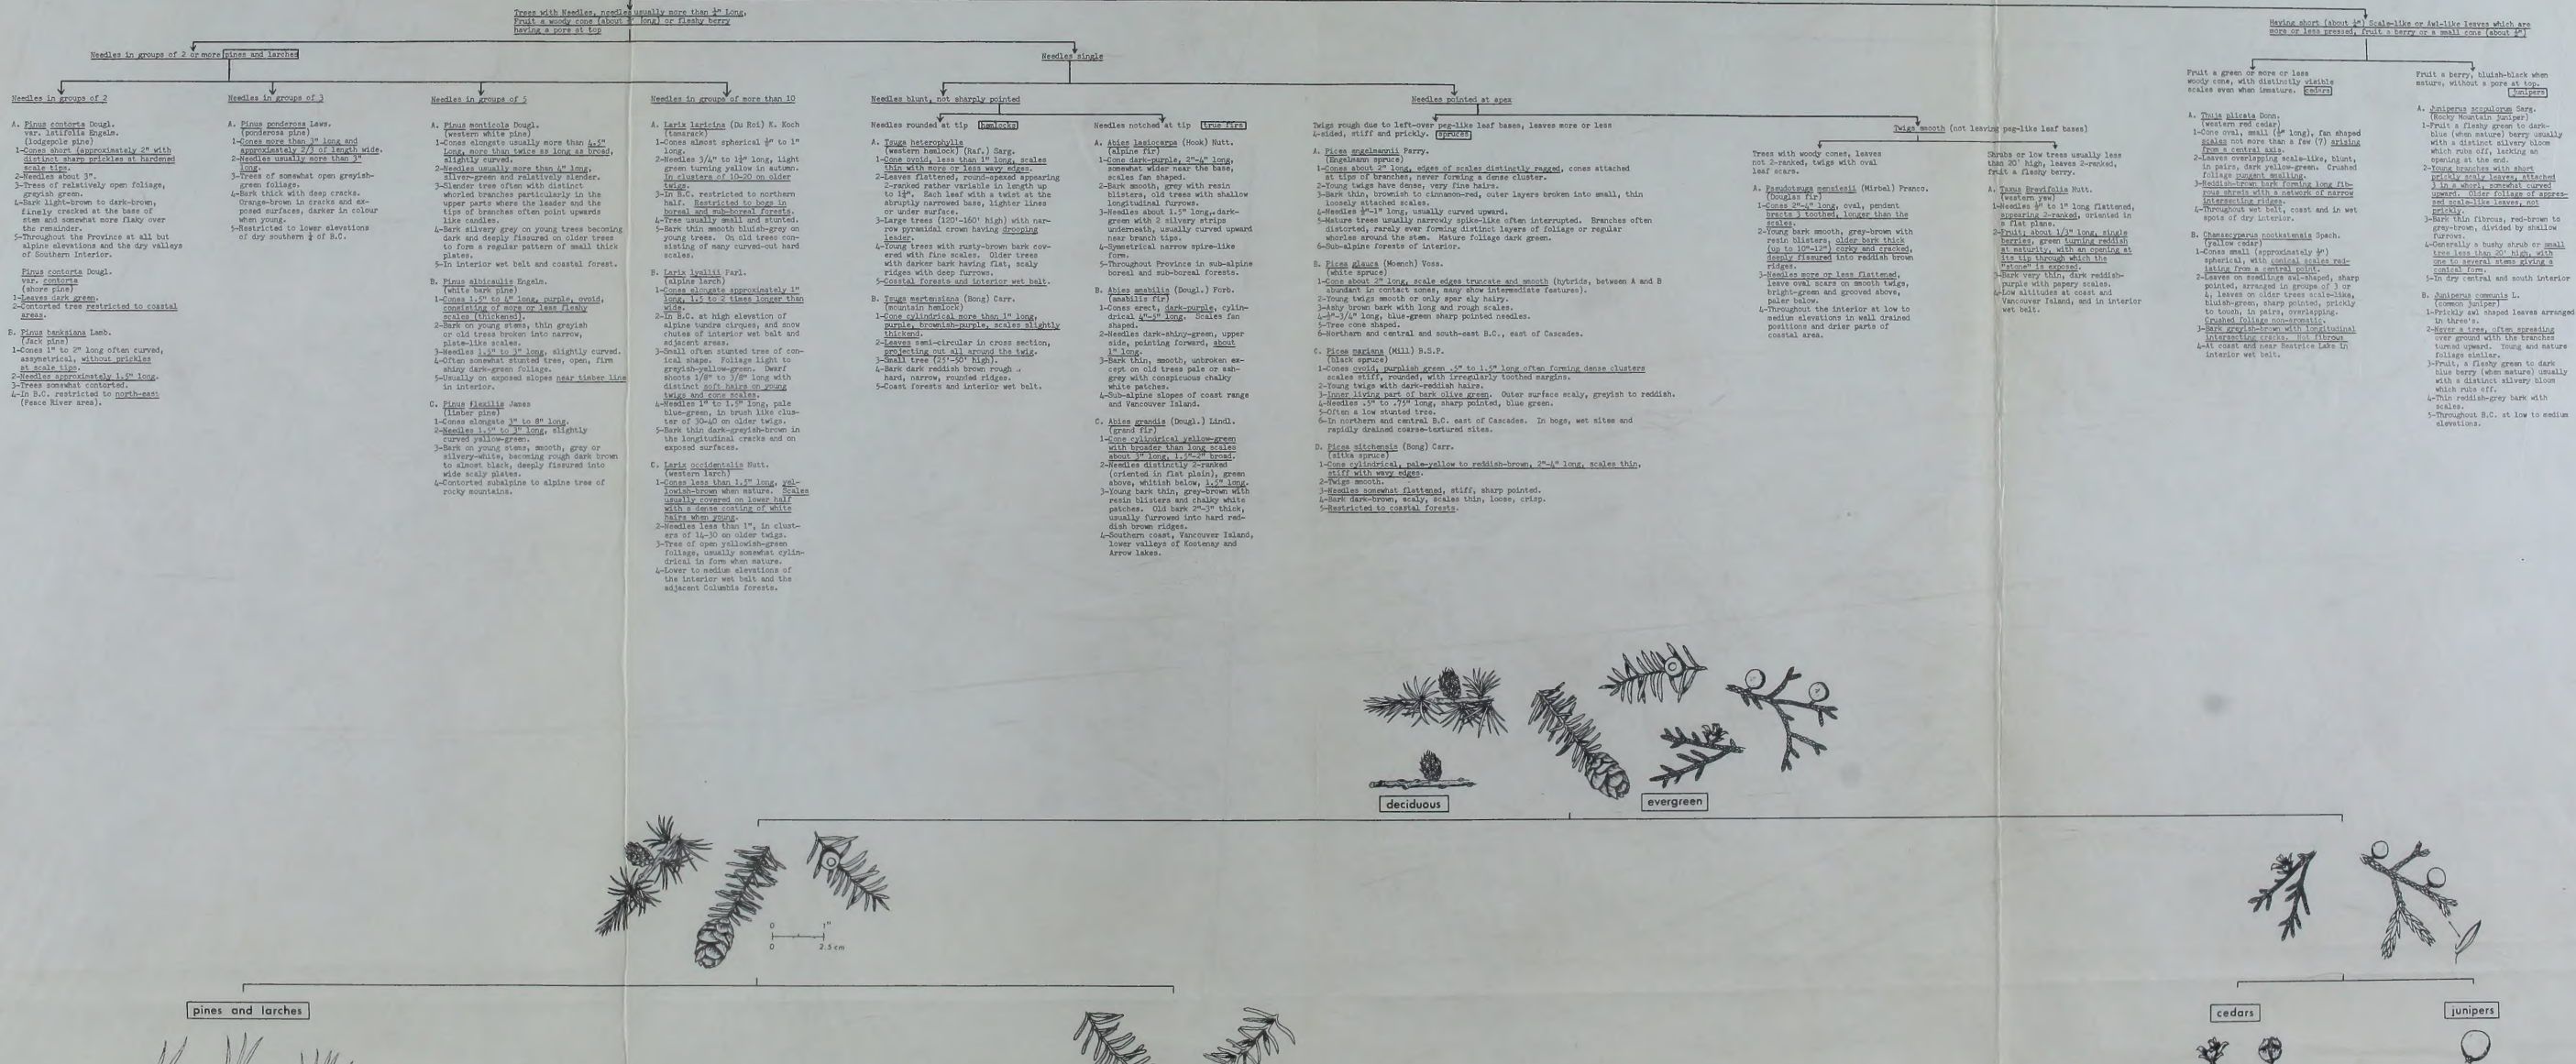 Trees with Needles, needles usually more than ½" Long,
Fruit a woody cone (about ½" long) or fleshy berry
having a pore at top
Having short (about ¼") Scale-like or Awl-like leaves which are
more or less pressed, fruit a berry or a small cone (about ½")
Needles in groups of 2 or more pines and larches
Needles single
Needles in groups of 2
A. Pinus contorta Dougl.
var. latifolia Engelm.
(lodgepole pine)
1-Cones short (approximately 2" with
distinct sharp prickles at hardened
scale tips.
2-Needles about 3".
3-Trees of relatively open foliage,
greyish green.
4-Bark light-brown to dark-brown,
finely cracked at the base of
stem and somewhat more flaky over
the remainder.
5-Throughout the Province at all but
alpine elevations and the dry valleys
of Southern Interior.
Pinus contorta Dougl.
var. contorta
(shore pine)
1-Leaves dark green.
2-Contorted tree restricted to coastal
areas.
B. Pinus banksiana Lamb.
(Jack pine)
1-Cones 1" to 2" long often curved,
assymetrical, without prickles
at scale tips.
2-Needles approximately 1.5" long.
3-Trees somewhat contorted.
4-In B.C. restricted to north-east
(Peace River area).
Needles in groups of 3
A. Pinus ponderosa Laws.
(ponderosa pine)
1-Cones more than 3" long and
approximately 2/3 of length wide.
2-Needles usually more than 3"
long.
3-Trees of somewhat open greyish-
green foliage.
4-Bark thick with deep cracks.
Orange-brown in cracks and ex-
posed surfaces, darker in colour
when young.
5-Restricted to lower elevations
of dry southern of B.C.
Needles in groups of 5
A. Pinus monticola Dougl.
(western white pine)
1-Cones elongate usually more than 4.5"
Long, more than twice as long as broad,
slightly curved.
2-Needles usually more than 4" long,
silver-green and relatively slender.
3-Slender tree often with distinct
whorled branches particularly in the
upper parts where the leader and the
tips of branches often point upwards
like candles.
4-Bark silvery grey on young trees becoming
dark and deeply fissured on older trees
to form a regular pattern of small thick
plates.
5-In interior wet belt and coastal forest.
B. Pinus albicaulis Engelm.
(white bark pine)
1-Cones 1.5" to 4" long, purple, ovoid,
consisting of more or less fleshy
scales (thickened).
2-Bark on young stems, thin greyish
or old trees broken into narrow,
plate-like scales.
3-Needles 1.5" to 3" long, slightly curved.
4-Often somewhat stunted tree, open, firm
shiny dark-green foliage.
5-Usually on exposed slopes near timber line
in interior.
C. Pinus flexilis James
(limber pine)
1-Cones elongate 3" to 8" long.
2-Needles 1.5" to 3" long, slightly
curved yellow-green.
3-Bark on young stems, smooth, grey or
silvery-white, becoming rough dark brown
to almost black, deeply fissured into
wide scaly plates.
4-Contorted subalpine to alpine tree of
rocky mountains.
Needles in groups of more than 10
A. Larix laricina (Du Roi) K. Koch
(tamarack)
1-Cones almost spherical ½" to 1"
long.
2-Needles 3/4" to 1¼" long, light
green turning yellow in autumn.
In clusters of 10-20 on older
twigs.
3-In B.C. restricted to northern
half. Restricted to bogs in
boreal and sub-boreal forests.
4-Trees usually small and stunted.
5-Bark thin smooth bluish-grey on
young trees. On old trees con-
sisting of many curved-out hard
scales.
B. Larix lyallii Parl.
(alpine larch)
1-Cones elongate approximately 1"
long, 1.5 to 2 times longer than
wide.
2-In B.C. at high elevation of
alpine tundra cirques, and snow
chutes of interior wet belt and
adjacent areas.
3-Small often stunted tree of con-
ical shape. Foliage light to
greyish-yellow-green. Dwarf
shoots 1/8" to 3/8" long with
distinct soft hairs on young
twigs and cone scales.
4-Needles 1" to 1.5" long, pale
blue-green, in brush like clus-
ter of 30-40 on older twigs.
5-Bark thin dark-greyish-brown in
the longitudinal cracks and on
exposed surfaces.
C. Larix occidentalis Nutt.
(western larch)
1-Cones less than 1.5" long, yel-
lowish-brown when mature. Scales
usually covered on lower half
with a dense coating of white
hairs when young.
2-Needles less than 1", in clust-
ers of 14-30 on older twigs.
3-Tree of open yellowish-green
foliage, usually somewhat cylin-
drical in form when mature.
4-Lower to medium elevations of
the interior wet belt and the
adjacent Columbia forests.
Needles blunt, not sharply pointed
Needles rounded at tip hemlocks
A. Tsuga heterophylla
(western hemlock) (Raf.) Sarg.
1-Cone ovoid, less than 1" long, scales
thin with more or less wavy edges.
2-Leaves flattened, round-apexed appearing
2-ranked rather variable in length up
to 1¼". Each leaf with a twist at the
abruptly narrowed base, lighter lines
or under surface.
3-Large trees (120'-160' high) with nar-
row pyramidal crown having drooping
leader.
4-Young trees with rusty-brown bark cov-
ered with fine scales. Older trees
with darker bark having flat, scaly
ridges with deep furrows.
5-Coastal forests and interior wet belt.
B. Tsuga mertensiana (Bong) Carr.
(mountain hemlock)
1-Cone cylindrical more than 1" long,
purple, brownish-purple, scales slightly
thickend.
2-Leaves semi-circular in cross section,
projecting out all around the twig.
3-Small tree (25'-50' high).
4-Bark dark reddish brown rough
hard, narrow, rounded ridges.
5-Coast forests and interior wet belt.
Needles notched at tip true firs
A. Abies lasiocarpa (Hook) Nutt.
(alpine fir)
1-Cone dark-purple, 2"-4" long,
somewhat wider near the base,
scales fan shaped.
2-Bark smooth, grey with resin
blisters, old trees with shallow
longitudinal furrows.
3-Needles about 1.5" long, dark-
green with 2 silvery strips
underneath, usually curved upward
near branch tips.
4-Symetrical narrow spire-like
form.
5-Throughout Province in sub-alpine
boreal and sub-boreal forests.
B. Abies amabilis (Dougl.) Forb.
(amabilis fir)
1-Cones erect, dark-purple, cylin-
drical 4"-5" long. Scales fan
shaped.
2-Needles dark-shiny-green, upper
side, pointing forward, about
1" long.
3-Bark thin, smooth, unbroken ex-
cept on old trees pale or ash-
grey with conspicuous chalky
white patches.
4-Sub-alpine slopes of coast range
and Vancouver Island.
C. Abies grandis (Dougl.) Lindl.
(grand fir)
1-Cone cylindrical yellow-green
with broader than long scales
about 3" long, 1.5"-2" broad.
2-Needles distinctly 2-ranked
(oriented in flat plain), green
above, whitish below, 1.5" long.
3-Young bark thin, grey-brown with
resin blisters and chalky white
patches. Old bark 2"-3" thick,
usually furrowed into hard red-
dish brown ridges.
4-Southern coast, Vancouver Island,
lower valleys of Kootenay and
Arrow lakes.
Needles pointed at apex
Twigs rough due to left-over peg-like leaf bases, leaves more or less
4-sided, stiff and prickly. spruces
A. Picea engelmannii Parry.
(Engelmann spruce)
1-Cones about 2" long, edges of scales distinctly ragged, cones attached
at tips of branches, never forming a dense cluster.
2-Young twigs have dense, very fine hairs.
3-Bark thin, brownish to cinnamon-red, outer layers broken into small, thin
loosely attached scales.
4-Needles ½"-1" long, usually curved upward.
5-Mature trees usually narrowly spike-like often interrupted. Branches often
distorted, rarely ever forming distinct layers of foliage or regular
whorles around the stem. Mature foliage dark green.
6-Sub-alpine forests of interior.
B. Picea glauca (Moench) Voss.
(white spruce)
1-Cone about 2" long, scale edges truncate and smooth (hybrids, between A and B
abundant in contact zones, many show intermediate features).
2-Young twigs smooth or only sparsely hairy.
3-Ashy brown bark with long and rough scales.
4-½"-3/4" long, blue-green sharp pointed needles.
5-Tree cone shaped.
6-Northern and central and south-east B.C., east of Cascades.
C. Picea mariana (Mill) B.S.P.
(black spruce)
1-Cones ovoid, purplish green .5" to 1.5" long often forming dense clusters
scales stiff, rounded, with irregularly toothed margins.
2-Young twigs with dark-reddish hairs.
3-Inner living part of bark olive green. Outer surface scaly, greyish to reddish.
4-Needles .5" to .75" long, sharp pointed, blue green.
5-Often a low stunted tree.
6-In northern and central B.C. east of Cascades. In bogs, wet sites and
rapidly drained coarse-textured sites.
D. Picea sitchensis (Bong) Carr.
(sitka spruce)
1-Cone cylindrical, pale-yellow to reddish-brown, 2"-4" long, scales thin,
stiff with wavy edges.
2-Twigs smooth.
3-Needles somewhat flattened, stiff, sharp pointed.
4-Bark dark-brown, scaly, scales thin, loose, crisp.
5-Restricted to coastal forests.
Twigs smooth (not leaving peg-like leaf bases)
Trees with woody cones, leaves
not 2-ranked, twigs with oval
leaf scars.
A. Pseudotsuga menziesii (Mirbel) Franco.
(Douglas fir)
1-Cones 2"-4" long, oval, pendent
bracts 3 toothed, longer than the
scales.
2-Young bark smooth, grey-brown with
resin blisters, older bark thick
(up to 10"-12") corky and cracked,
deeply fissured into reddish brown
ridges.
3-Needles more or less flattened,
leave oval scars on smooth twigs,
bright-green and grooved above,
paler below.
4-Throughout the interior at low to
medium elevations in well drained
positions and drier parts of
coastal area.
Shrubs or low trees usually less
than 20' high, leaves 2-ranked,
fruit a fleshy berry.
A. Taxus Brevifolia Nutt.
(western yew)
1-Needles ½" to 1" long flattened,
appearing 2-ranked, oriented in
a flat plane.
2-Fruit; about 1/3" long, single
berries, green turning reddish
at maturity, with an opening at
its tip through which the
"stone" is exposed.
3-Bark very thin, dark reddish-
purple with papery scales.
4-Low altitudes at coast and
Vancouver Island, and in interior
wet belt.
Fruit a green or more or less
woody cone, with distinctly visible
scales even when immature. cedars
A. Thuja plicata Donn.
(western red cedar)
1-Cone oval, small (½" long), fan shaped
scales not more than a few (7) arising
from a central axis.
2-Leaves overlapping scale-like, blunt,
in pairs, dark yellow-green. Crushed
foliage pungent smelling.
3-Reddish-brown bark forming long fib-
rous shreds with a network of narrow
intersecting ridges.
4-Throughout wet belt, coast and in wet
spots of dry interior.
B. Chamaecyparus nootkatensis Spach.
(yellow cedar)
1-Cones small (approximately ½")
spherical, with conical scales rad-
iating from a central point.
2-Leaves on seedlings awl-shaped, sharp
pointed, arranged in groups of 3 or
4, leaves on older trees scale-like,
bluish-green, sharp pointed, prickly
to touch, in pairs, overlapping.
Crushed foliage non-aromatic.
3-Bark greyish-brown with longitudinal
intersecting cracks. Not fibrous
4-At coast and near Beatrice Lake in
interior wet belt.
Fruit a berry, bluish-black when
mature, without a pore at top.
junipers
A. Juniperus scopulorum Sarg.
(Rocky Mountain juniper)
1-Fruit a fleshy green to dark-
blue (when mature) berry usually
with a distinct silvery bloom
which rubs off, lacking an
opening at the end.
2-Young branches with short
prickly scaly leaves, attached
3 in a whorl, somewhat curved
upward. Older foliage of appres-
sed scale-like leaves, not
prickly.
3-Bark thin fibrous, red-brown to
grey-brown, divided by shallow
furrows.
4-Generally a bushy shrub or small
tree less than 20' high, with
one to several stems giving a
conical form.
5-In dry central and south interior
B. Juniperus communis L.
(common juniper)
1-Prickly awl shaped leaves arranged
in three's.
2-Never a tree, often spreading
over ground with the branches
turned upward. Young and mature
foliage similar.
3-Fruit, a fleshy green to dark
blue berry (when mature) usually
with a distinct silvery bloom
which rubs off.
4-Thin reddish-grey bark with
scales.
5-Throughout B.C. at low to medium
elevations.
deciduous
evergreen
0 1"
0 2.5 cm
pines and larches
cedars
junipers